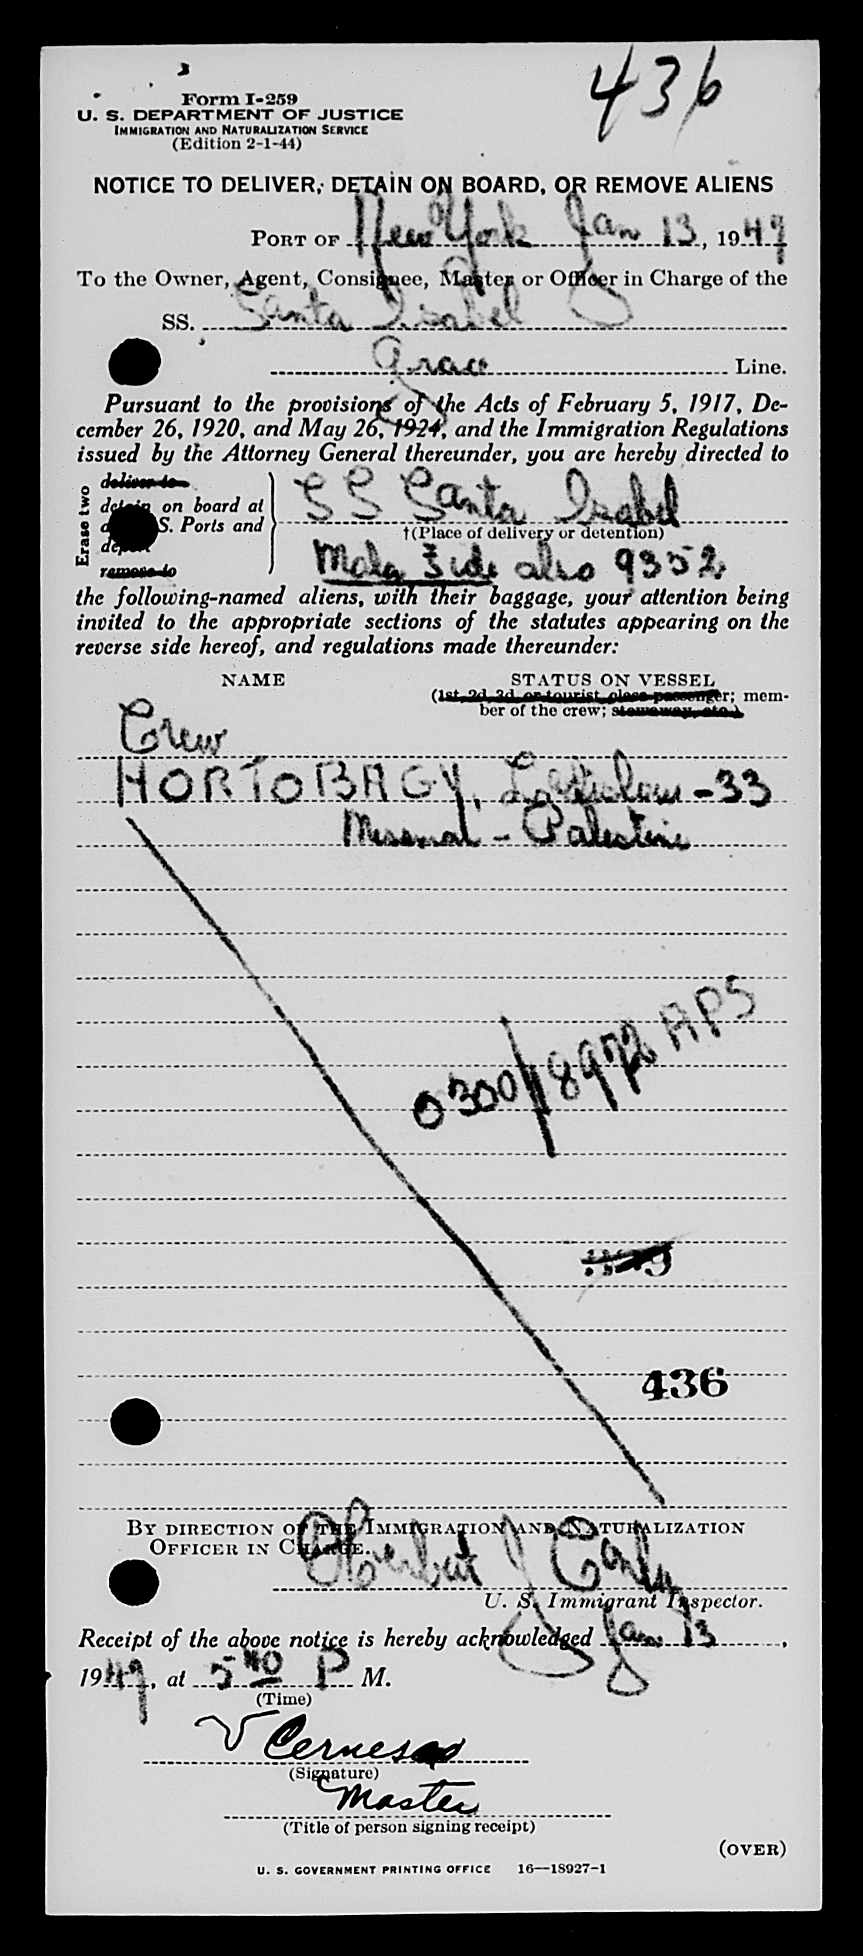 436
Form I-259
U. S. DEPARTMENT OF JUSTICE
IMMIGRATION AND NATURALIZATION SERVICE
(Edition 2-1-44)
NOTICE TO DELIVER, DETAIN ON BOARD, OR REMOVE ALIENS
PORT OF New York Jan 13, 1949
To the Owner, Agent, Consignee, Master or Officer in Charge of the
SS. Santa Isabel
Grace Line.
Pursuant to the provisions of the Acts of February 5, 1917, De-
cember 26, 1920, and May 26, 1924, and the Immigration Regulations
issued by the Attorney General thereunder, you are hereby directed to
Erase two
deliver to
detain on board at
S. Ports and
remove to
SS Santa Isabel
†(Place of delivery or detention)
also 9352
the following-named aliens, with their baggage, your attention being
invited to the appropriate sections of the statutes appearing on the
reverse side hereof, and regulations made thereunder:
NAME STATUS ON VESSEL
(1st, 2d, 3d, or tourist class passenger; mem-
ber of the crew; stowaway, etc.)
Crew
HORTOBAGY, -33
Messman - Palestine
0300/18972 APS
436
BY DIRECTION OF THE IMMIGRATION AND NATURALIZATION
OFFICER IN CHARGE.
Herbert J
U. S. Immigrant Inspector.
Receipt of the above notice is hereby acknowledged Jan 13,
1949, at 5 40 P M.
(Time)
V
(Signature)
Master
(Title of person signing receipt)
(OVER)
U. S. GOVERNMENT PRINTING OFFICE 16—18927-1